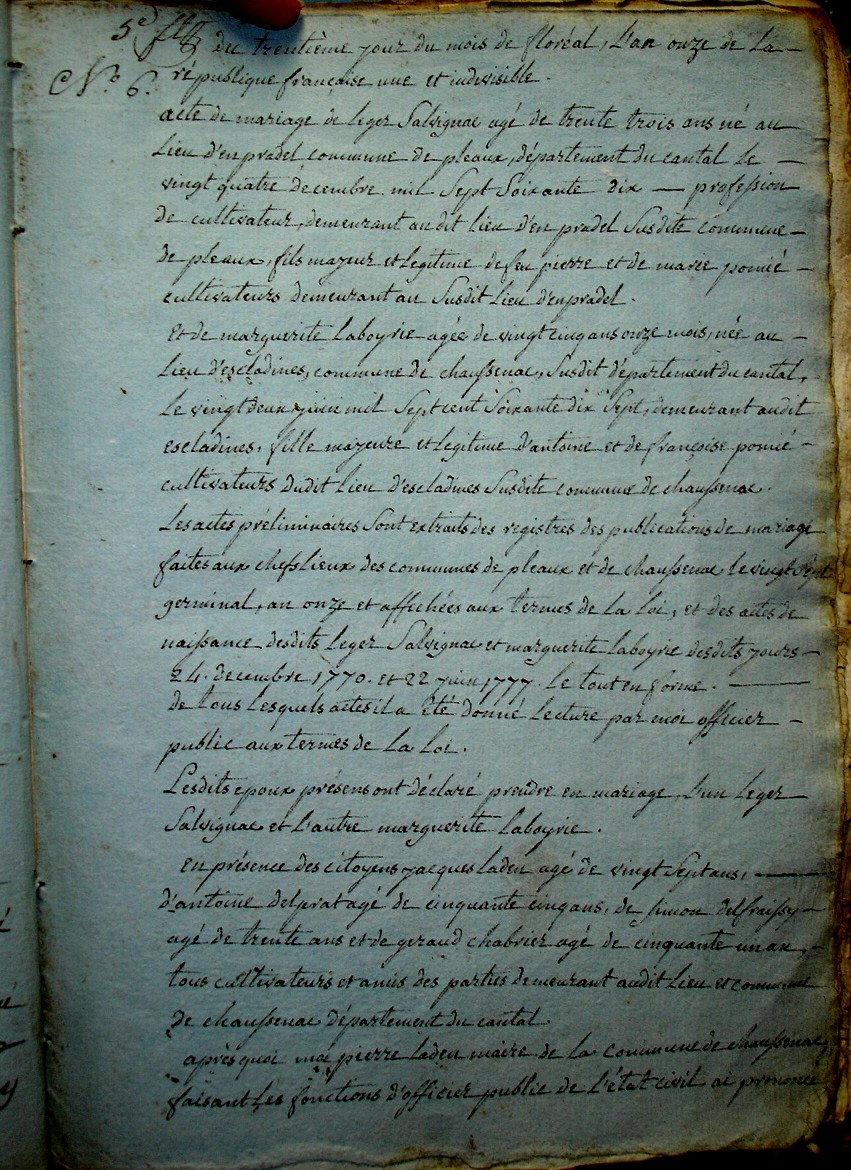 5e
N.º 6.
du trentième jour du mois de floréal, l'an onze de la
république française une et indivisible.
acte de mariage de leger Salvignac agé de trente trois ans né au
Lieu d'enpradel commune de pleaux, département du cantal le
vingt quatre decembre mil Sept Soixante dix — profession
de cultivateur, demeurant audit lieu d'enpradel Susdite commune
de pleaux, fils majeur et legitime de feu pierre et de marie pomié
cultivateurs demeurant au Susdit Lieu d'enpradel.
Et de marguerite Laboyrie agée de vingt cinq ans onze mois, née au
Lieu d'escladines, commune de chaussenac, Susdit département du cantal,
Le vingt deux juin mil Sept cent Soixante dix Sept, demeurant audit
escladines, fille majeure et legitime d'antoine et de françoise pomié
cultivateurs dudit Lieu d'escladines Susdite commune de chaussenac.
Les actes préliminaires Sont extraits des registres des publications de mariage
faites aux chefs Lieux des communes de pleaux et de chaussenac le vingt Sept
germinal, an onze et affechées aux termes de La Loi, et des actes de
naissance desdits leger Salvignac et marguerite Laboyrie desdits jours
24. decembre 1770. et 22 juin 1777. Le tout en forme.
de tous Lesquels actes il a été donné Lecture par moi officier
public aux termes de La Loi.
Lesdits epoux présens ont déclaré prendre en mariage, L'un Leger
Salvignac et L'autre marguerite Laboyrie.
En présence des citoyens jacques Laden agé de vingt Sept ans,
d'antoine delprat agé de cinquante cinq ans, de Simon delfraissy
agé de trente ans et de geraud chabrier agé de cinquante un an,
tous cultivateurs et amis des parties demeurant audit Lieu et commune
de chaussenac département du cantal.
après quoi moi pierre Laden maire de La commune de chaussenac,
faisant Les fonctions d'officier public de L'état civil ai prononcé